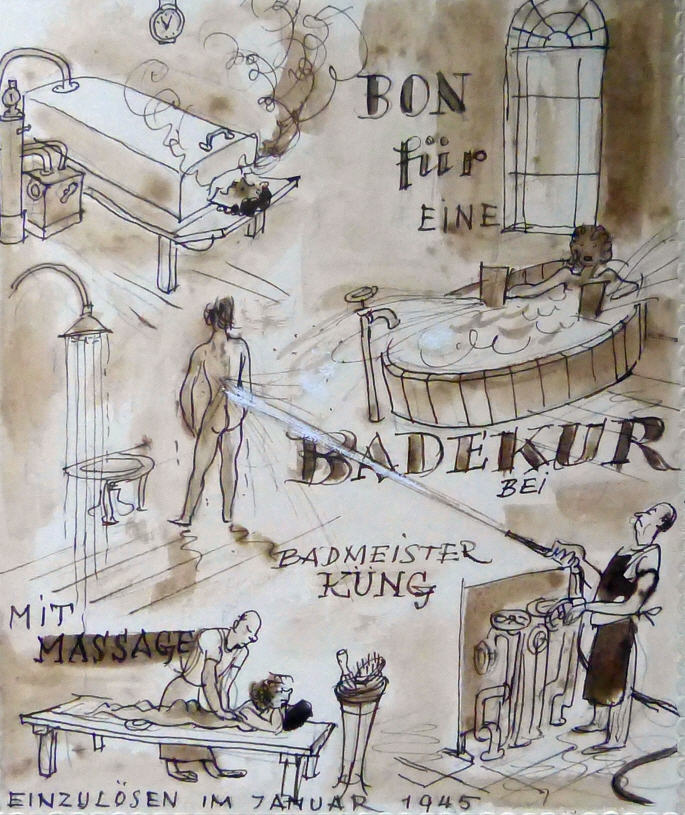 BON
für
EiNE
BADEKUR
BEi
BADMEiSTER
KÜNG
MiT
MASSAGE
EINZULÖSEN IM JANUAR 1945